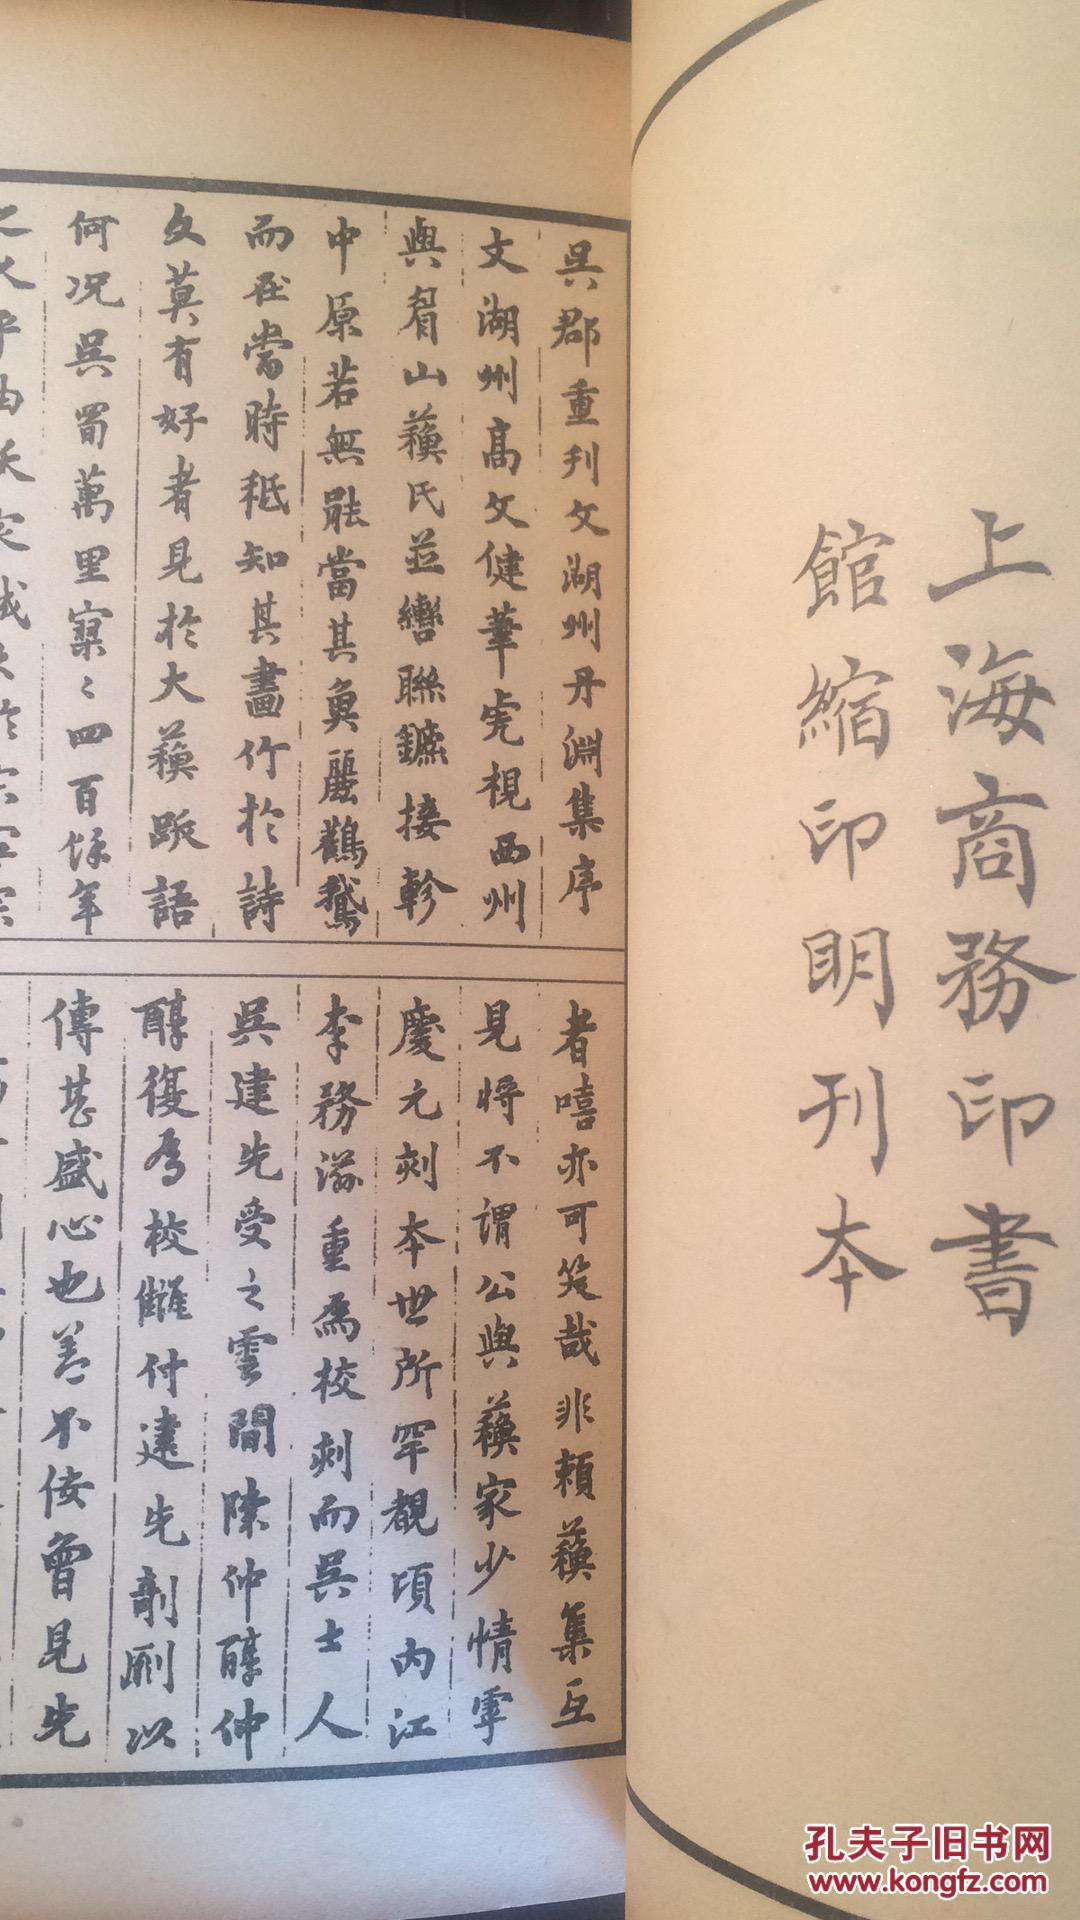 上海商務印書
館縮印明刊本
吳郡重刊文湖州丹淵集序
文湖州高文健筆虎視西州
與眉山蘓氏並轡聯鑣接軫
中原若無能當其魚麗鸛鵝
而在當時秪知其畫竹於詩
文莫有好者見於大蘓跋語
何况吳蜀萬里寥〻四百餘年
者嘻亦可笑哉非賴蘓集互
見將不謂公與蘓家少情寧
慶元刻本世所罕覩頃内江
李務滋重爲校刻而吳士人
吳建先受之雲間陳仲醇仲
醇復爲校讎付建先剞劂以
傳甚盛心也盖不佞曾見先
孔夫子旧书网
www.kongfz.com